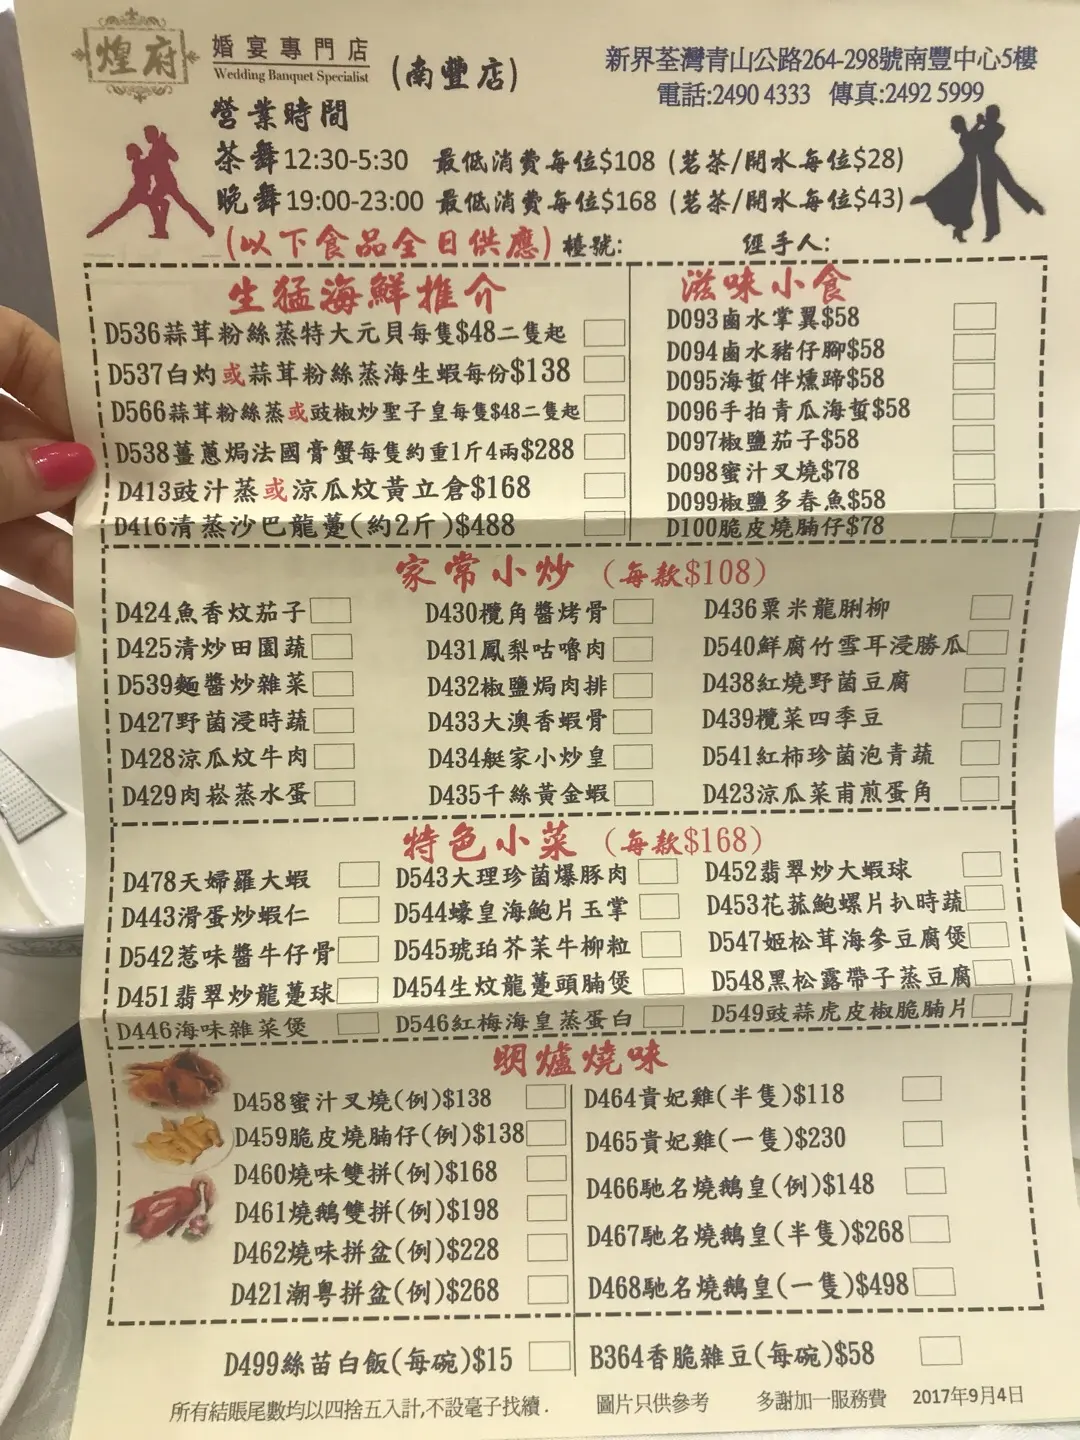 煌府
婚宴專門店
Wedding Banquet Specialist
(南豐店)
新界荃灣青山公路264-298號南豐中心5樓
電話:2490 4333 傳真:2492 5999
營業時間
茶舞12:30-5:30 最低消費每位$108 (茗茶/開水每位$28)
晚舞19:00-23:00 最低消費每位$168 (茗茶/開水每位$43)
(以下食品全日供應) 檯號: 經手人:
生猛海鮮推介
D536蒜茸粉絲蒸特大元貝每隻$48二隻起
D537白灼或蒜茸粉絲蒸海生蝦每份$138
D566蒜茸粉絲蒸或豉椒炒聖子皇每隻$48二隻起
D538薑蔥焗法國膏蟹每隻約重1斤4兩$288
D413豉汁蒸或涼瓜炆黃立倉$168
D416清蒸沙巴龍躉(約2斤)$488
滋味小食
D093鹵水掌翼$58
D094鹵水豬仔腳$58
D095海蜇伴燻蹄$58
D096手拍青瓜海蜇$58
D097椒鹽茄子$58
D098蜜汁叉燒$78
D099椒鹽多春魚$58
D100脆皮燒腩仔$78
家常小炒 (每款$108)
D424魚香炆茄子 D430欖角醬烤骨 D436粟米龍脷柳
D425清炒田園蔬 D431鳳梨咕嚕肉 D540鮮腐竹雪耳浸勝瓜
D539麵醬炒雜菜 D432椒鹽焗肉排 D438紅燒野菌豆腐
D427野菌浸時蔬 D433大澳香蝦骨 D439欖菜四季豆
D428涼瓜炆牛肉 D434艇家小炒皇 D541紅柿珍菌泡青蔬
D429肉崧蒸水蛋 D435千絲黃金蝦 D423涼瓜菜甫煎蛋角
特色小菜 (每款$168)
D478天婦羅大蝦 D543大理珍菌爆豚肉 D452翡翠炒大蝦球
D443滑蛋炒蝦仁 D544蠔皇海鮑片玉掌 D453花菰鮑螺片扒時蔬
D542惹味醬牛仔骨 D545琥珀芥茉牛柳粒 D547姬松茸海參豆腐煲
D451翡翠炒龍躉球 D454生炆龍躉頭腩煲 D548黑松露帶子蒸豆腐
D446海味雜菜煲 D546紅梅海皇蒸蛋白 D549豉蒜虎皮椒脆腩片
明爐燒味
D458蜜汁叉燒(例)$138
D459脆皮燒腩仔(例)$138
D460燒味雙拼(例)$168
D461燒鵝雙拼(例)$198
D462燒味拼盆(例)$228
D421潮粤拼盆(例)$268
D464貴妃雞(半隻)$118
D465貴妃雞(一隻)$230
D466馳名燒鵝皇(例)$148
D467馳名燒鵝皇(半隻)$268
D468馳名燒鵝皇(一隻)$498
D499絲苗白飯(每碗)$15 B364香脆雜豆(每碗)$58
所有結賬尾數均以四捨五入計,不設毫子找續. 圖片只供參考 多謝加一服務費 2017年9月4日